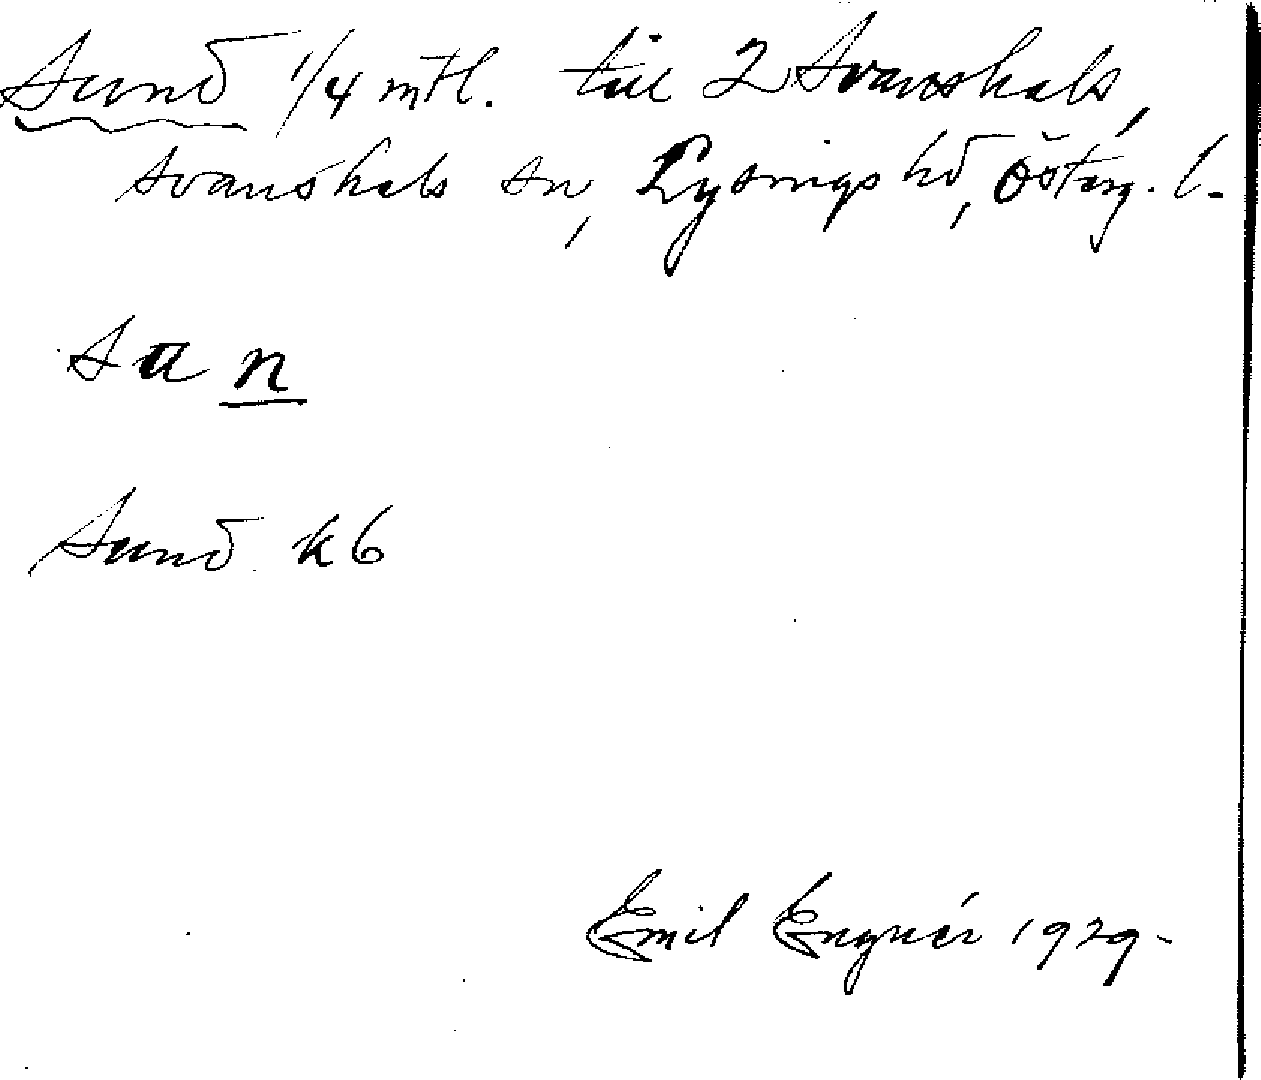 Sund 1/4 mtl. till 2 Svanshals,
Svanshals sn, Lysings hd, Österg. l.
sun
Sund kb
Emil Engnér 1929-